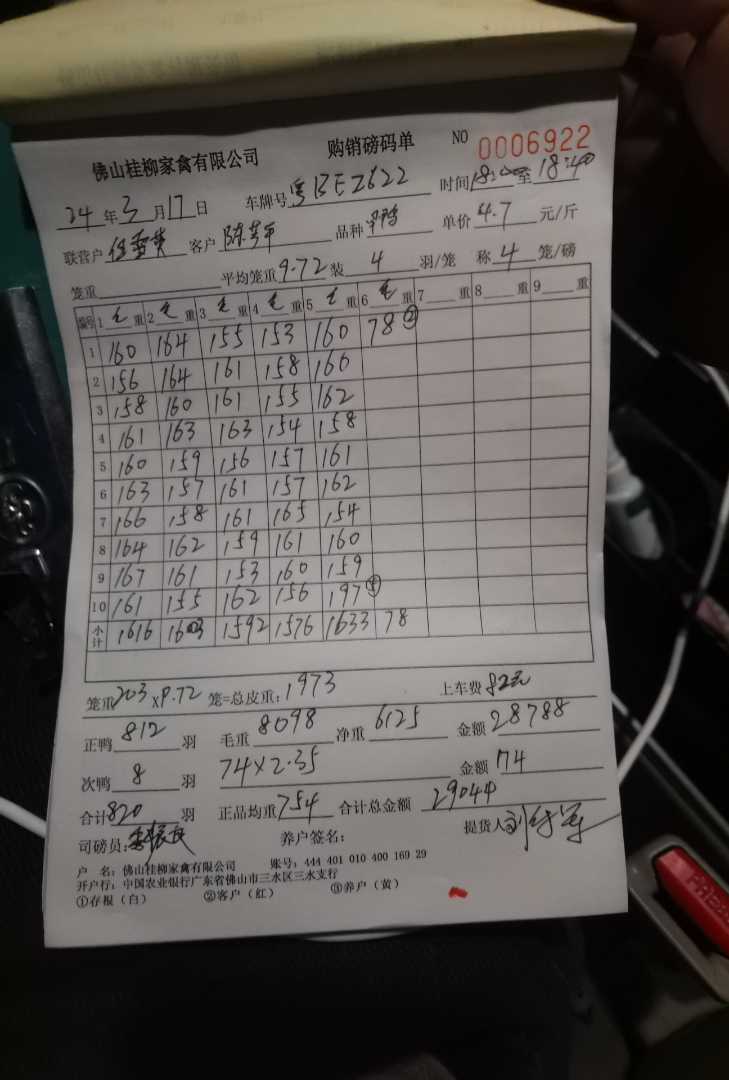 佛山桂柳家禽有限公司 购销磅码单 NO 0006922
24年3月17日 车牌号粤BEZ622 时间18:00至18:40
联营户 客户 品种 单价4.7元/斤
笼重 平均笼重9.72装4羽/笼 称4笼/磅
编号 1 毛重 2 毛重 3 毛重 4 毛重 5 毛重 6 毛重 7 重 8 重 9 重
1 160 164 155 153 160 78②
2 156 164 161 158 166
3 158 160 161 155 162
4 161 163 163 154 158
5 160 159 156 157 161
6 163 157 161 157 162
7 166 158 161 165 154
8 164 162 159 161 160
9 167 161 153 160 159
10 161 155 162 156 197
小计 1616 1603 1592 1576 1633 78
笼重203x9.72笼=总皮重:1973 上车费82元
正鸭812羽 毛重8098 净重6125 金额28788
次鸭8羽 74×2.35 金额174
合计820羽 正品均重754 合计总金额29044
司磅员: 养户签名: 提货人
户 名:佛山桂柳家禽有限公司 账号:444 401 010 400 169 29
开户行:中国农业银行广东省佛山市三水区三水支行
①存根(白) ②客户(红) ③养户(黄)